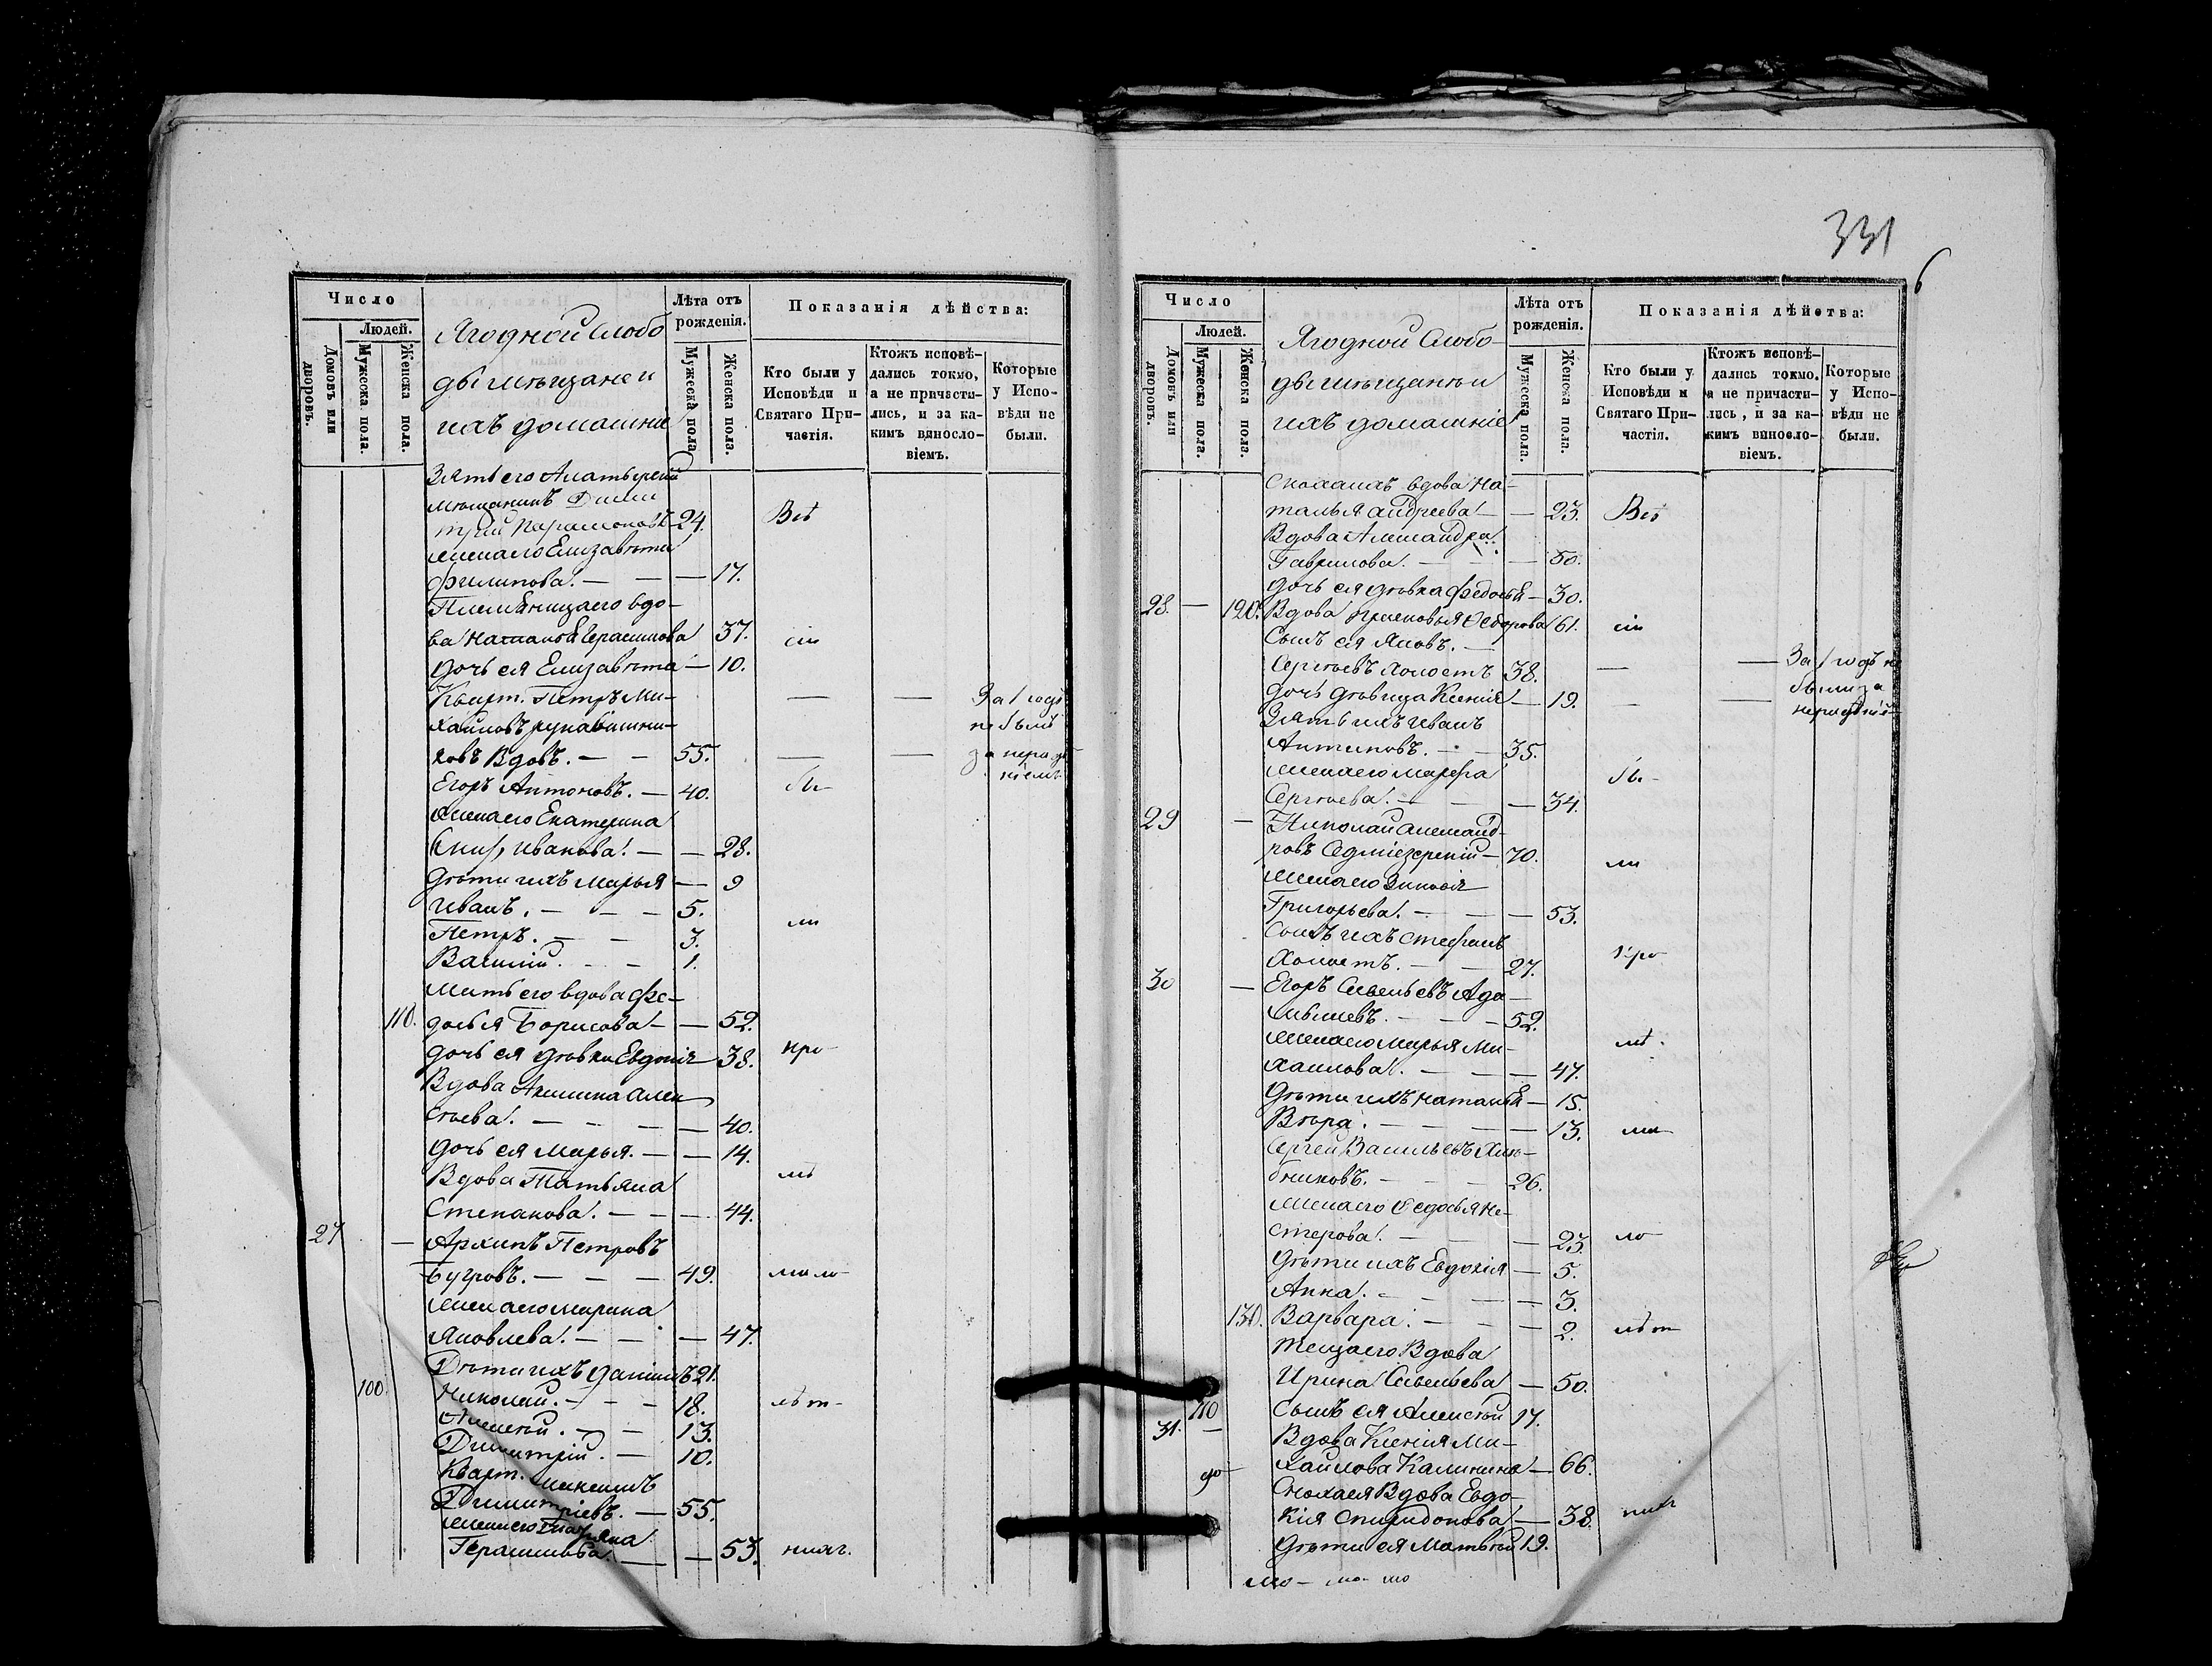 331
6
Число
Людей.
Домовъ или дворовъ.
Мужеска пола.
Женска пола.
Ягодной Слобо
ды мѣщане и
ихъ домашніе
Лѣта отъ рожденія.
Мужеска пола.
Женска пола.
Показанія дѣйства:
Кто были у Исповѣди и Святаго Причастія.
Ктожъ исповѣдались токмо, а не причастились, и за какимъ винословіемъ.
Которые у Исповѣди не были.
Зять его Алатырскій
мѣщанинъ Дими
трій Парамоновъ 24. Всѣ
Жена его Елизавета
Филипова. — — — 17.
Племянница его вдо-
ва Наталья Герасимова 37. сіи
Дочь ея Елизавета — 10.
Кварт. Петръ Ми- — — За 1 годъ
хайловъ рукавишни- не былъ
ковъ Вдовъ. — — 55. — — за нерадѣ
ніемъ
Егоръ Антоновъ. — 40. бы-
Жена его Екатерина
Ивакова. — — 28.
Дѣти ихъ Марья — 9
Иванъ. — — — 5. ли
Петръ. — — 3.
Василій. — — 1.
Мать его вдова Фе-
110. досья Борисова — — 52.
Дочь ея дѣвка Евдокія 38. Про-
Вдова Акилина Алек
сѣева. — — — — 40.
Дочь ея Марья. — — 14.
Вдова Татьяна
Степанова. — — — 44.
27 — Архипъ Петровъ
Бугровъ. — — — 49.
Жена его Марина
Яковлева. — — — 47.
Дѣти ихъ Даніилъ 21.
100. Николай. — — — 18. лѣт-
Алексѣй. — — 13.
Димитрій. — 10.
Кварт. Максимъ
Димитріевъ. — 55.
Жена его Татьяна
Герасимова. — — 53.
Число
Людей.
Домовъ или дворовъ.
Мужеска пола.
Женска пола.
Ягодной Слобо-
ды мѣщане и
ихъ домашніе
Лѣта отъ рожденія.
Мужеска пола.
Женска пола.
Показанія дѣйства:
Кто были у Исповѣди и Святаго Причастія.
Ктожъ исповѣдались токмо, а не причастились, и за какимъ винословіемъ.
Которые у Исповѣди не были.
Сноха ихъ вдова На-
талья Андреева — — 23. Всѣ
Вдова Александра
Гаврилова. — — — 50.
Дочь ея дѣвка Федосья — 30.
28. — 120. Вдова Прасковья Ѳедорова 61. сіи
Сынъ ея Яковъ. —
Сергѣевъ холостъ 38. — — За 1 годъ не
Дочь дѣвица Ксенія — 19. — — были за
нерадѣніе
Зять ихъ Иванъ
Антиповъ. — — 35.
Жена его Марфа бы-
Сергѣева. — — — 34.
29 — Николай Александ-
ровъ Седміезерскій — 70. ли
Жена его Зиновія
Григорьева. — — — 53.
Сынъ ихъ Стефанъ
Холостъ. — — 27. Про-
30 — Егоръ Савельевъ
— — — 52.
Жена его Марья Ми-
хаилова. — — — 47.
Дѣти ихъ Наталья — 15.
Вѣра. — — — — 13.
Сергей Васильевъ Хлѣ-
бниковъ. — — — 26.
Жена его Ѳедосья Не-
стерова. — — — 23.
Дѣти ихъ Евдокія — 5.
Анна. — — — — 3.
130. Варвара. — — — 2. лѣт-
Теща его Вдова
Ирина Савельева — 50.
110 Сынъ ея Алексѣй 17.
31. — Вдова Ксенія Ми-
хайлова Калинина — 66.
Сноха ея Вдова Евдо-
кія Спиридонова — 38.
Дѣти ея Матвей 19.